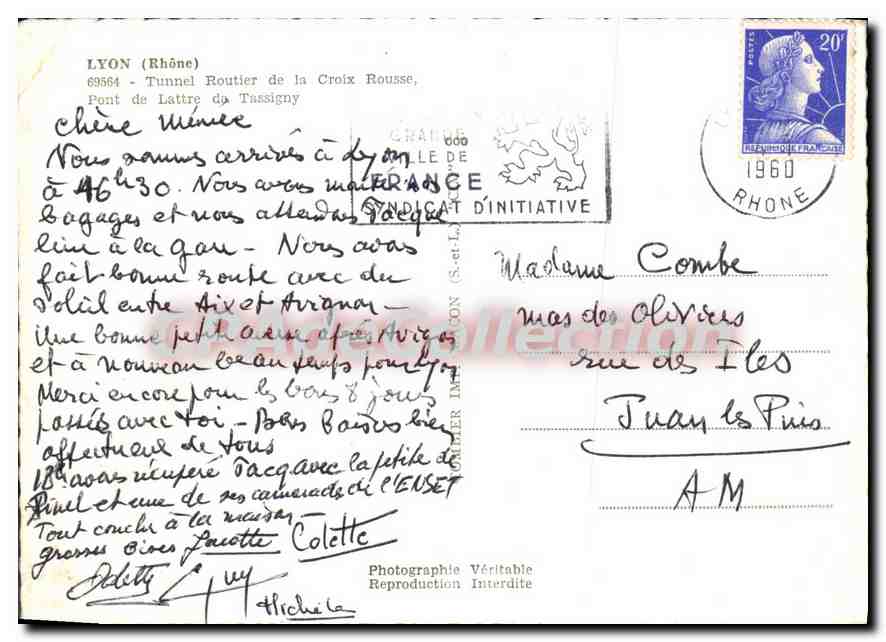 LYON (Rhône)
69564 - Tunnel Routier de la Croix Rousse,
Pont de Lattre de Tassigny
chère Mémée
Nous sommes arrivés à Lyon
à 16h30. Nous avons nos
bagages et nous attendons Jacque
line à la gare - Nous avons
fait bonne route avec du
soleil entre Aix et Avignon -
Une bonne petite averse après Avignon
et à nouveau beau temps pour Lyon
Merci encore pour les bons 8 jours
passés avec toi - Bons Baisers bien
affectueux de tous
18h avons récupéré Jacq avec la petite de
Pinel et une de ses camarades de l'ENSET
Tout couche à la maison -
grosses bises Jacotte Colette
Odette Guy
Michèle
GRANDE
VILLE DE
FRANCE
SYNDICAT D'INITIATIVE
POSTES
20F
REPUBLIQUE FRANÇAISE
1960
RHONE
COMBIER IMP. MACON (S.-et-L.)
Madame Combe
mas des Oliviers
rue des Iles
Juan les Pins
AM
Photographie Véritable
Reproduction Interdite
Collection